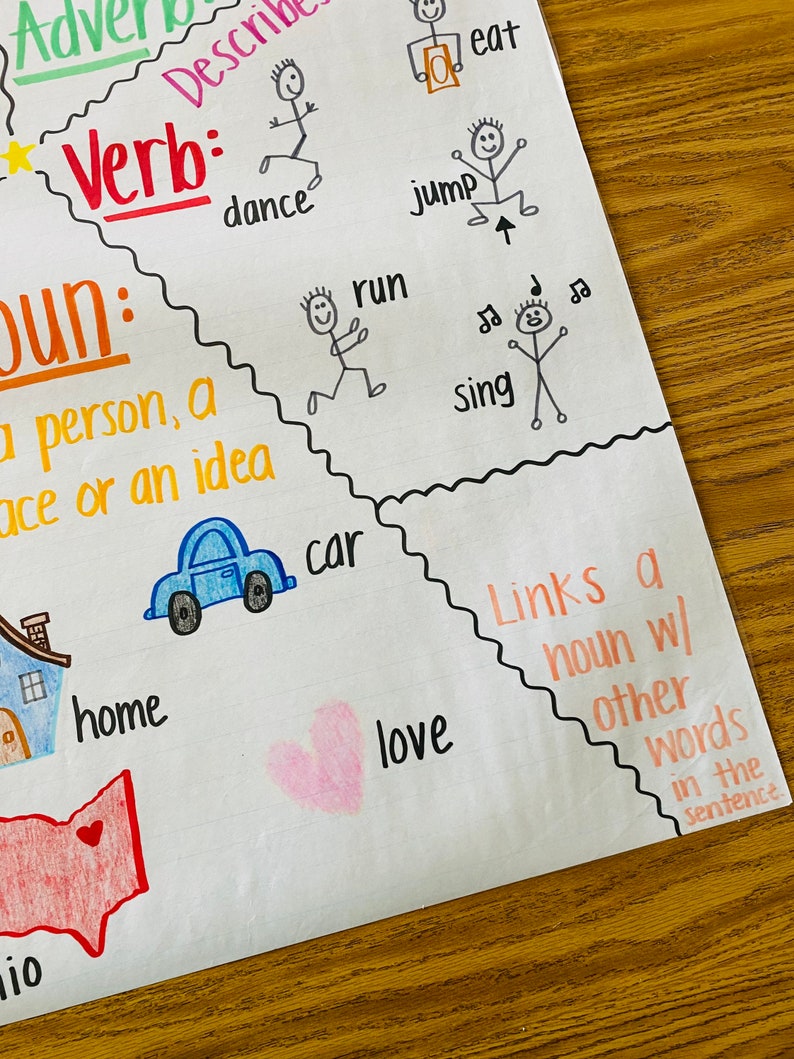 Adverb:
Describes
eat
Verb:
dance
jump
run
sing
oun:
a person, a
ace or an idea
car
home
love
io
Links a
noun w/
other
words
in the
sentence.